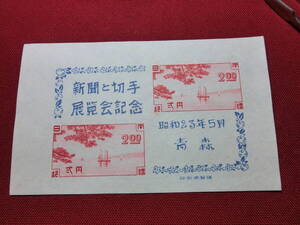 新聞と切手
展覧会記念
2.00
弐円
2.00
弐円
昭和23年5月
青森